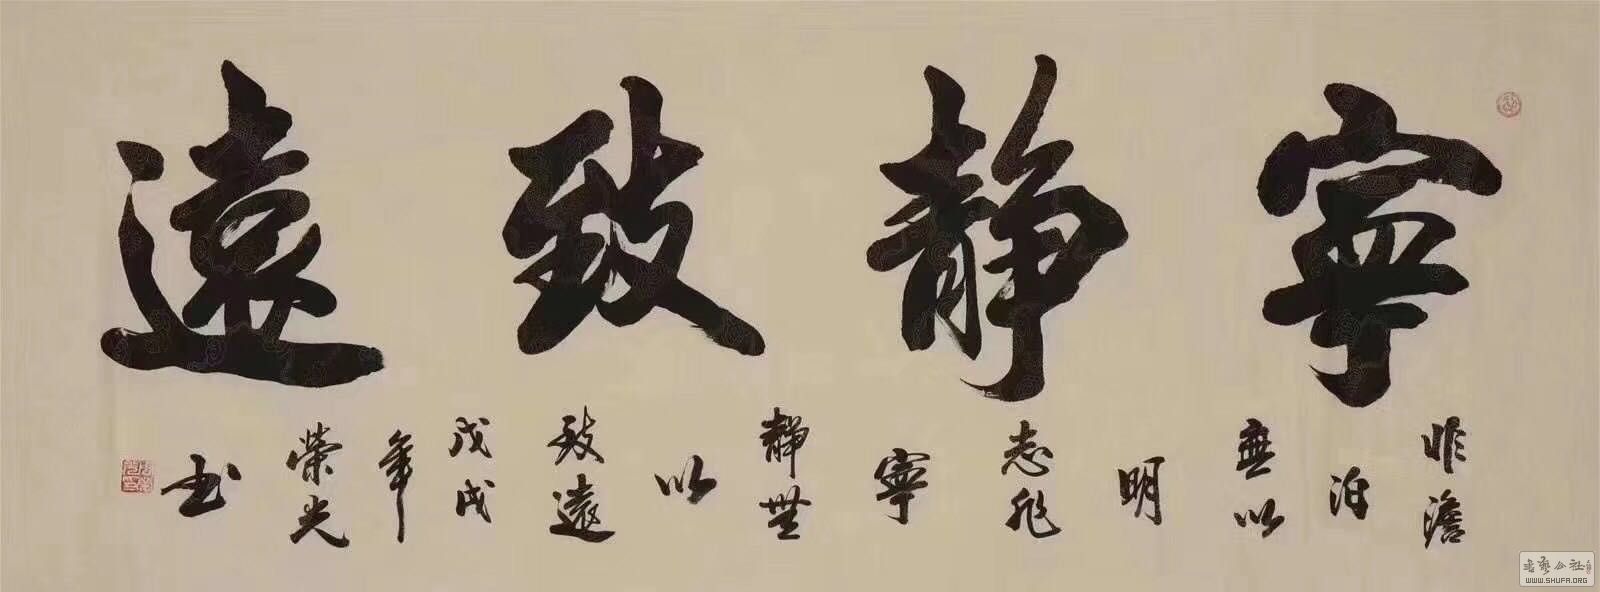 寧静致遠
非澹
泊
無以
明
志非
寧
静無
以
致遠
戊戌
年
榮光
书
书艺公社
WWW.SHUFA.ORG